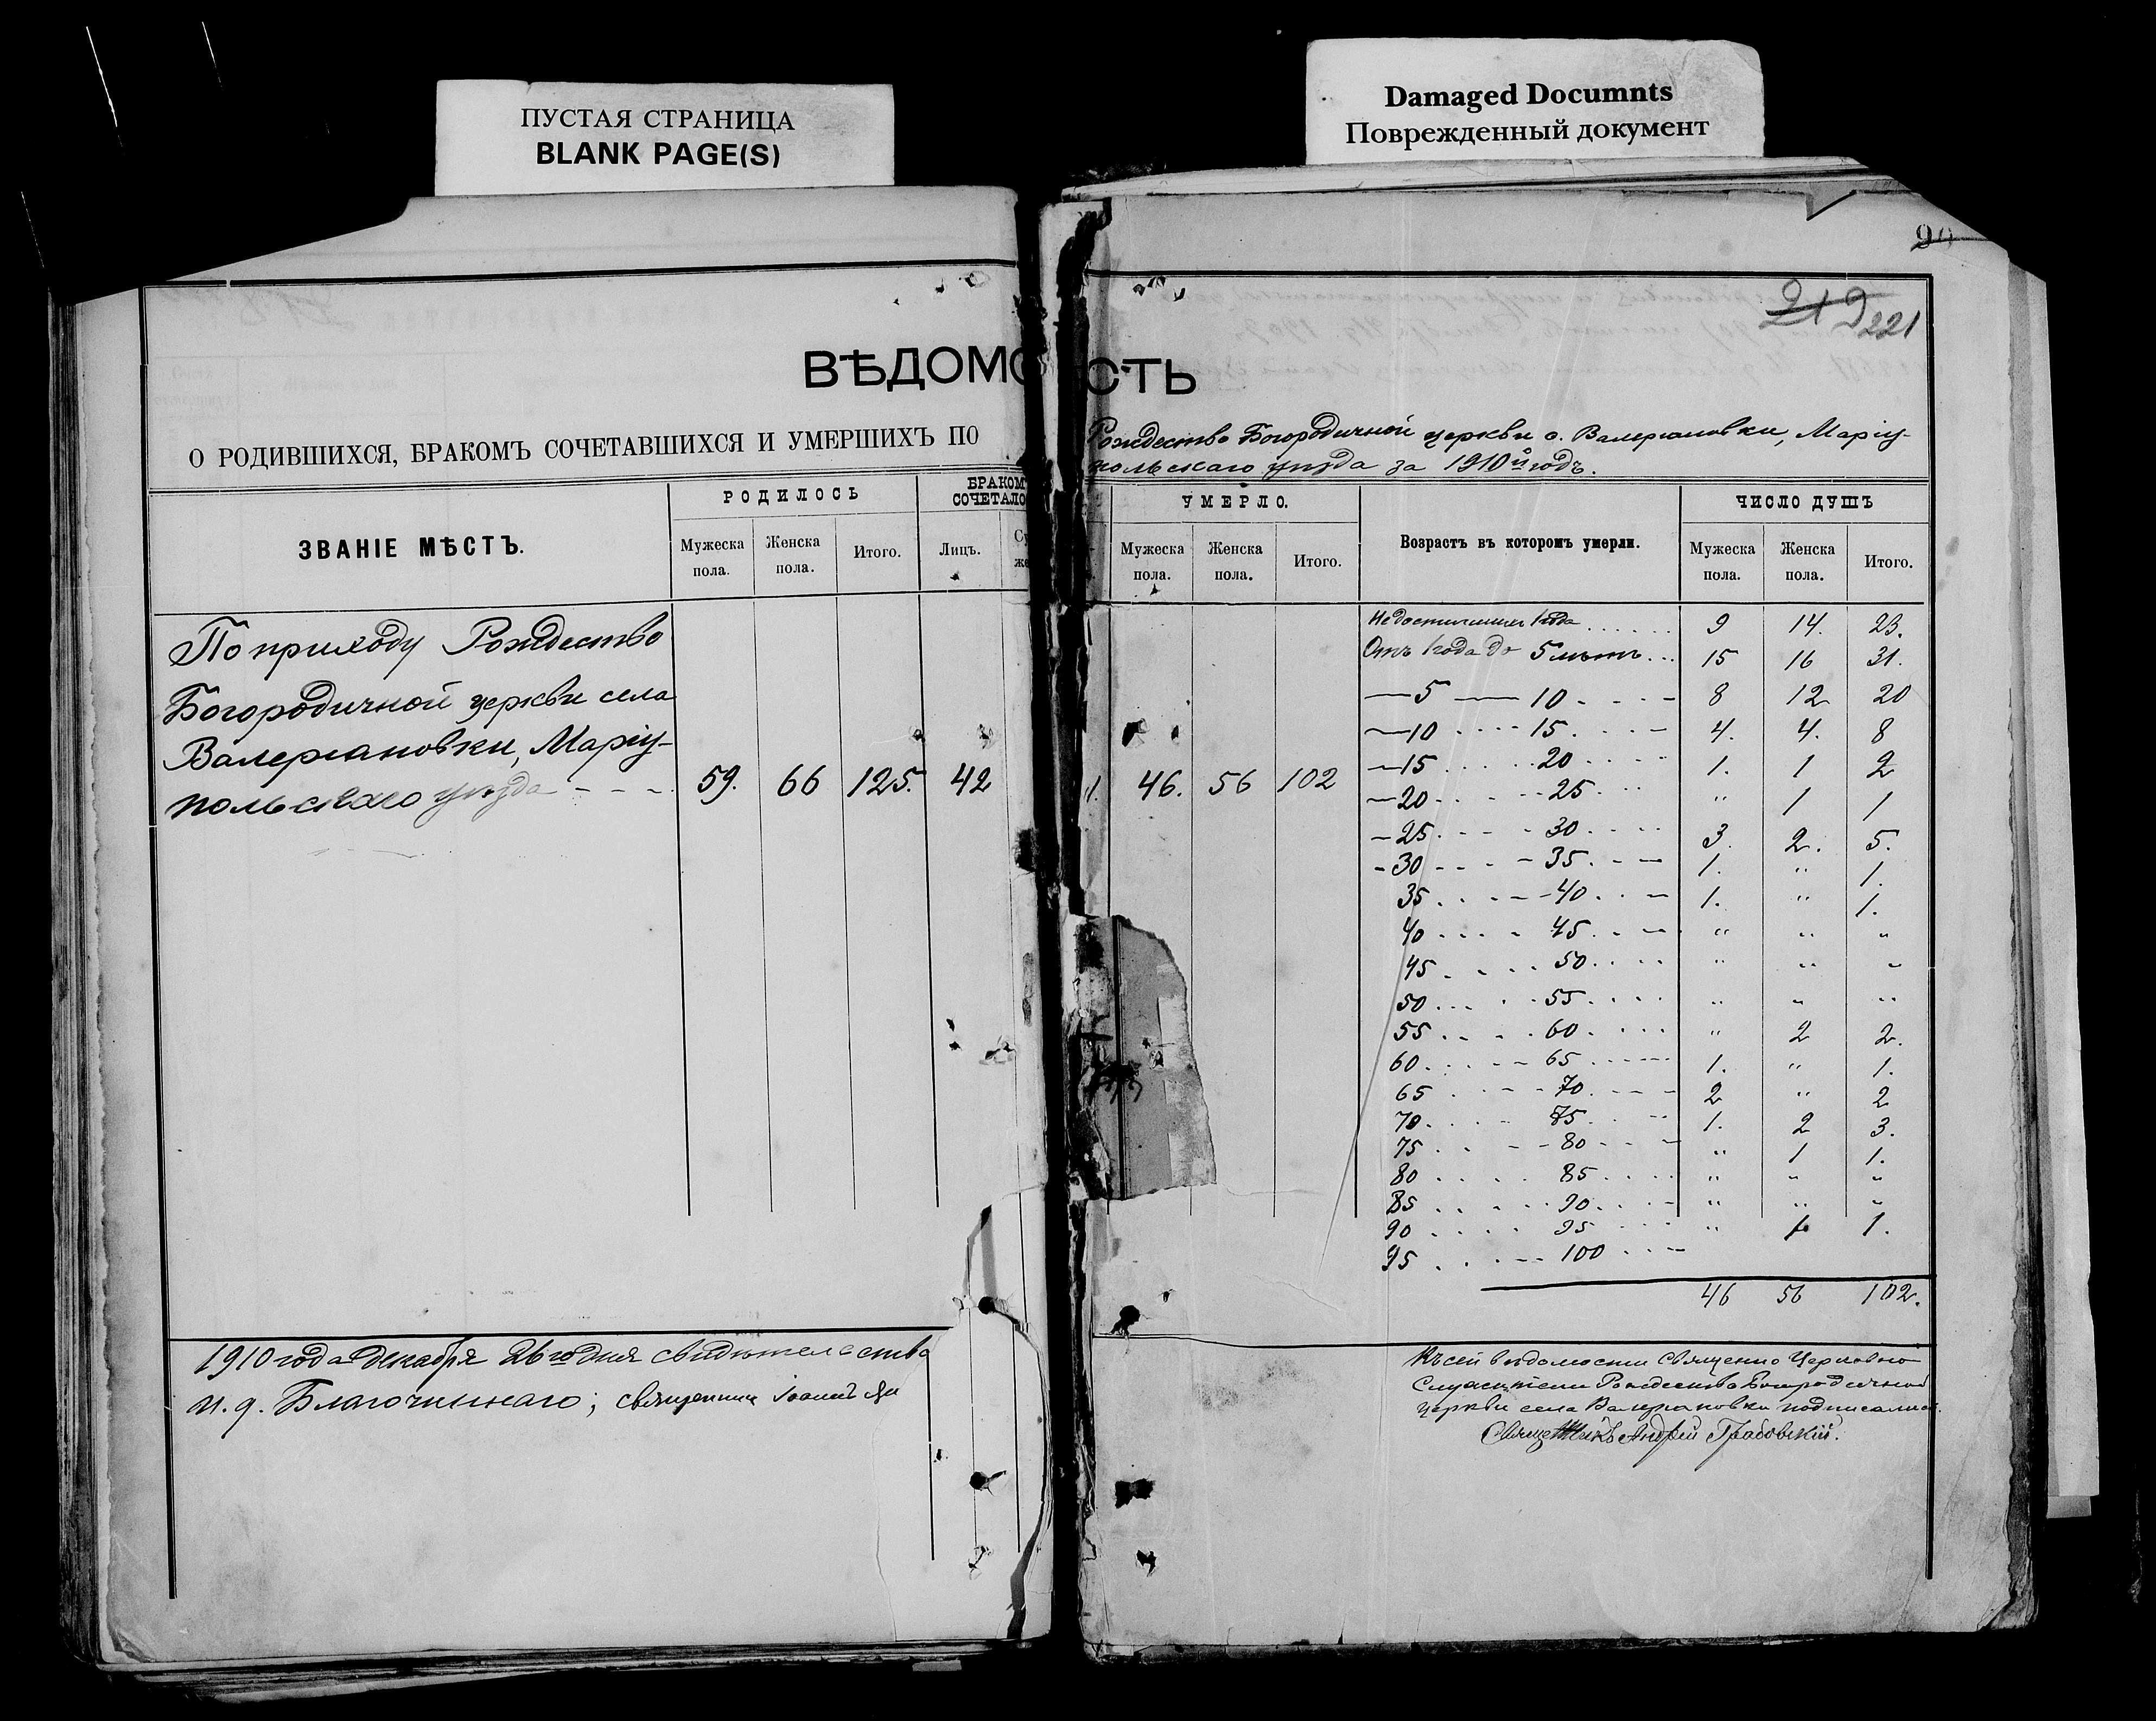 ПУСТАЯ СТРАНИЦА
BLANK PAGE(S)
Damaged Documnts
Поврежденный документ
90
219 221
ВѢДОМОСТЬ
О РОДИВШИХСЯ, БРАКОМЪ СОЧЕТАВШИХСЯ И УМЕРШИХЪ ПО Рождество Богородичной церкви с. Валеріановки, Маріу-
польскаго уѣзда за 1910й годъ.
ЗВАНІЕ МѢСТЪ.
РОДИЛОСЬ
Мужеска пола.
Женска пола.
Итого.
БРАКОМ
СОЧЕТАЛО
Лицъ.
УМЕРЛО.
Мужеска пола.
Женска пола.
Итого.
Возрастъ въ которомъ умерли.
ЧИСЛО ДУШЪ
Мужеска пола.
Женска пола.
Итого.
По приходу Рождество
Богородичной церкви села
Валеріановки, Маріу-
польскаго уѣзда - - - 59. 66 125. 42 1. 46. 56 102
Недостигшихъ 1 года . . . . . . 9 14. 23.
Отъ 1 года до 5 лѣтъ... 15 16 31.
— 5 — 10 - - - - 8 12 20
— 10 ---- 15. . . . - 4. 4. 8
— 15 . . . . . 20 - . . . 1. 1 2
— 20 - . . - - 25 . . . " 1 1
— 25. - - - 30 . . . . 3. 2. 5.
- 30 - - - - 35. - - 1. " 1.
35 . . - - 40 . . - 1. " 1.
40 - - - - 45 . - - " " "
45 . . . . 50 . . . . " " "
50 ... . . 55 . . . . " " "
55 . . . . 60 . . . . " 2 2.
60 . . . - - 65 ------ 1. " 1.
65 . - - - 70. - - - 2 " 2
70. . . . - 75 . . - 1. 2 3.
75 . . - - 80 - - - " 1 1.
80 . . . . . 85 . . . . " " "
85 . . . . . 90. . . - " " "
90 . . . . . 95 . . . " 1 1.
95 . . . -- 100 . . -
46 56 102.
1910 года Декабря 26го дня свидѣтельства
и. д. Благочиннаго; священникъ Іоаннъ
Къ сей вѣдомости Священно Церковно
Служители Рождество Богородичной
церкви села Валеріановки подписались
Священникъ Андрей Грабовскій.